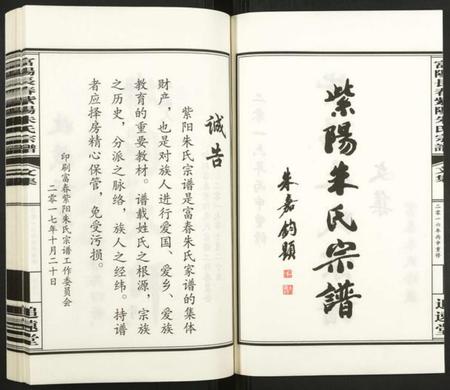 紫陽朱氏宗譜
朱嘉鈞題
誠告
紫阳朱氏宗谱是富春朱氏家谱的集体
财产，也是对族人进行爱国、爱乡、爱族
教育的重要教材。谱载姓氏之根源，宗族
之历史，分派之脉络，族人之经纬。持谱
者应择房精心保管，免受污损。
印刷富春紫阳朱氏宗谱工作委员会
二零一七年十月二十日
富陽長春紫陽朱氏宗譜
文集
二零一六年丙申重修
追遠堂
富陽長春紫陽朱氏宗譜
文集
追遠堂